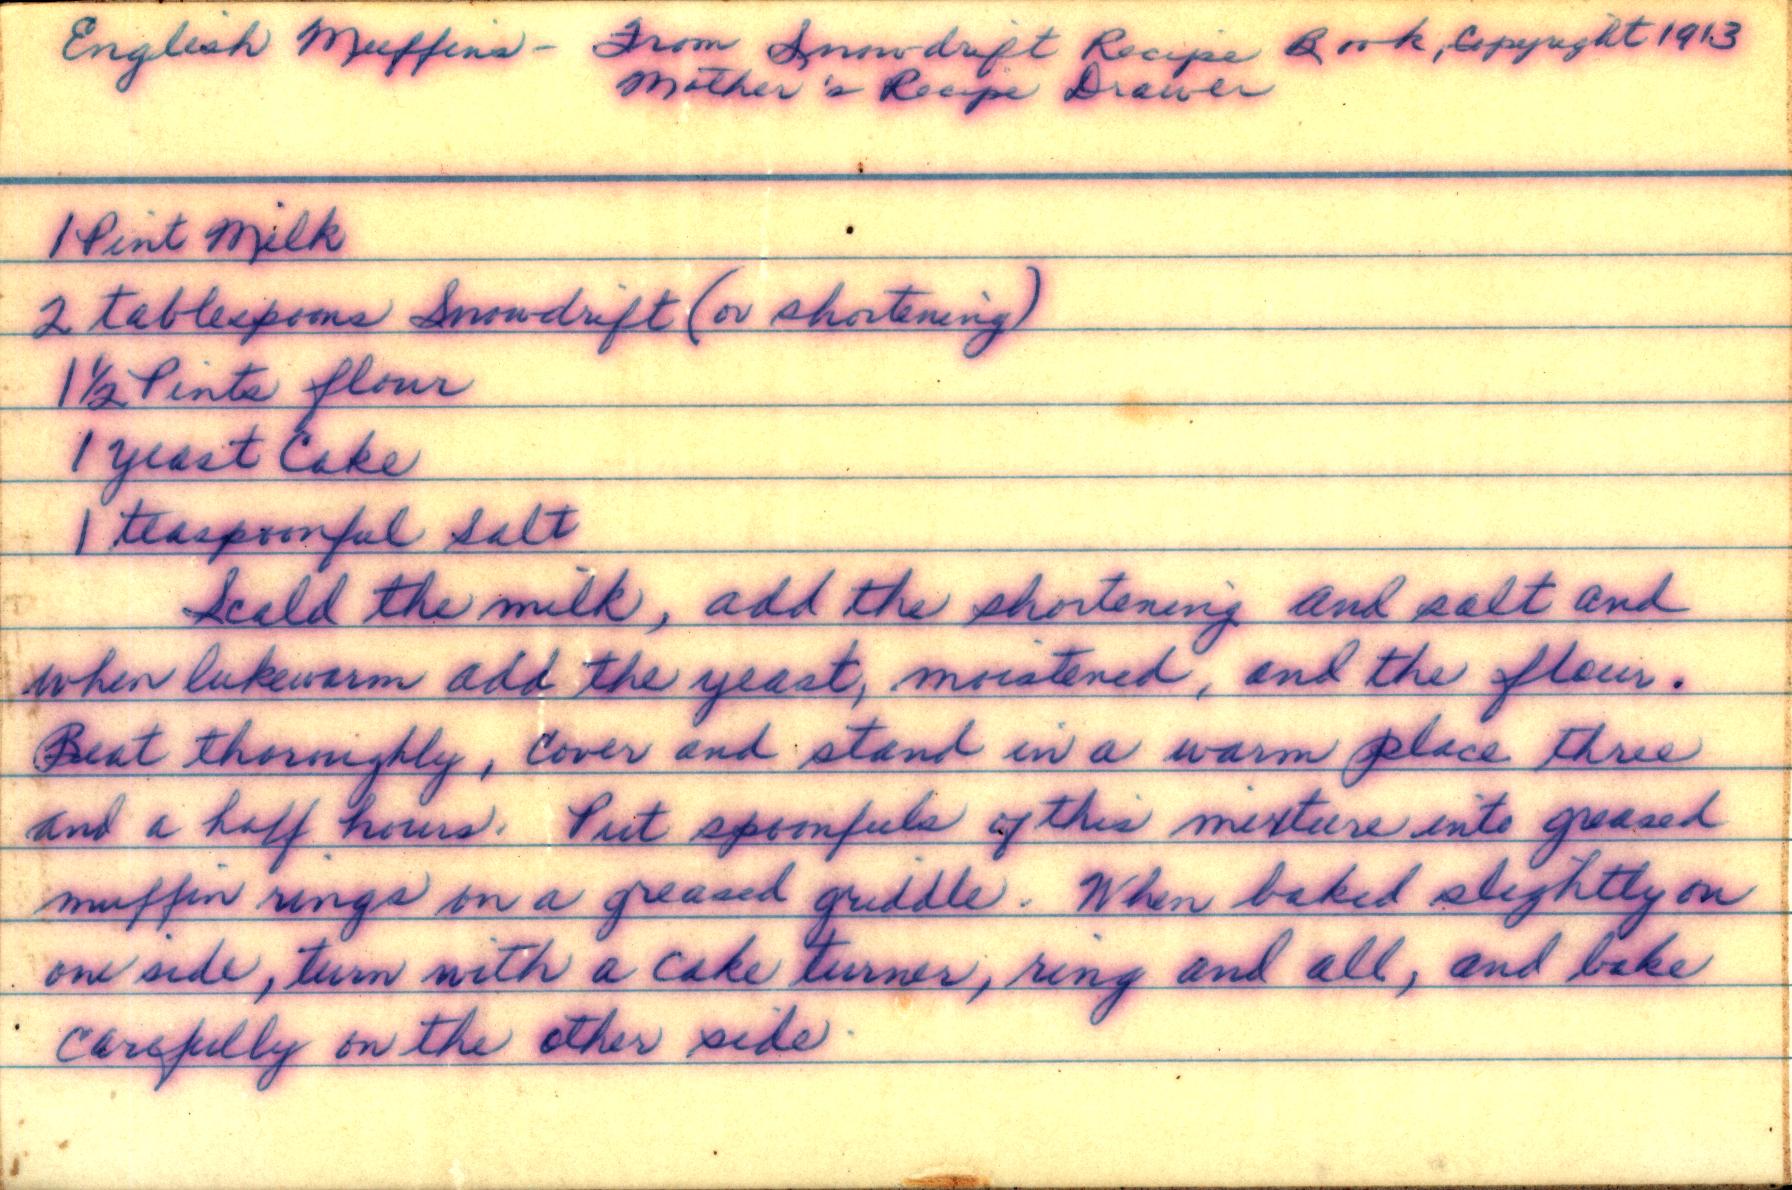 English Muffins - From Snowdrift Recipe Book, Copyright 1913
Mother's Recipe Drawer
1 Pint Milk
2 tablespoons Snowdrift (or shortening)
1½ Pints flour
1 yeast Cake
1 teaspoonful salt
Scald the milk, add the shortening and salt and
when lukewarm add the yeast, moistened, and the flour.
Beat thoroughly, cover and stand in a warm place three
and a half hours. Put spoonfuls of this mixture into greased
muffin rings on a greased griddle. When baked slightly on
one side, turn with a cake turner, ring and all, and bake
carefully on the other side.